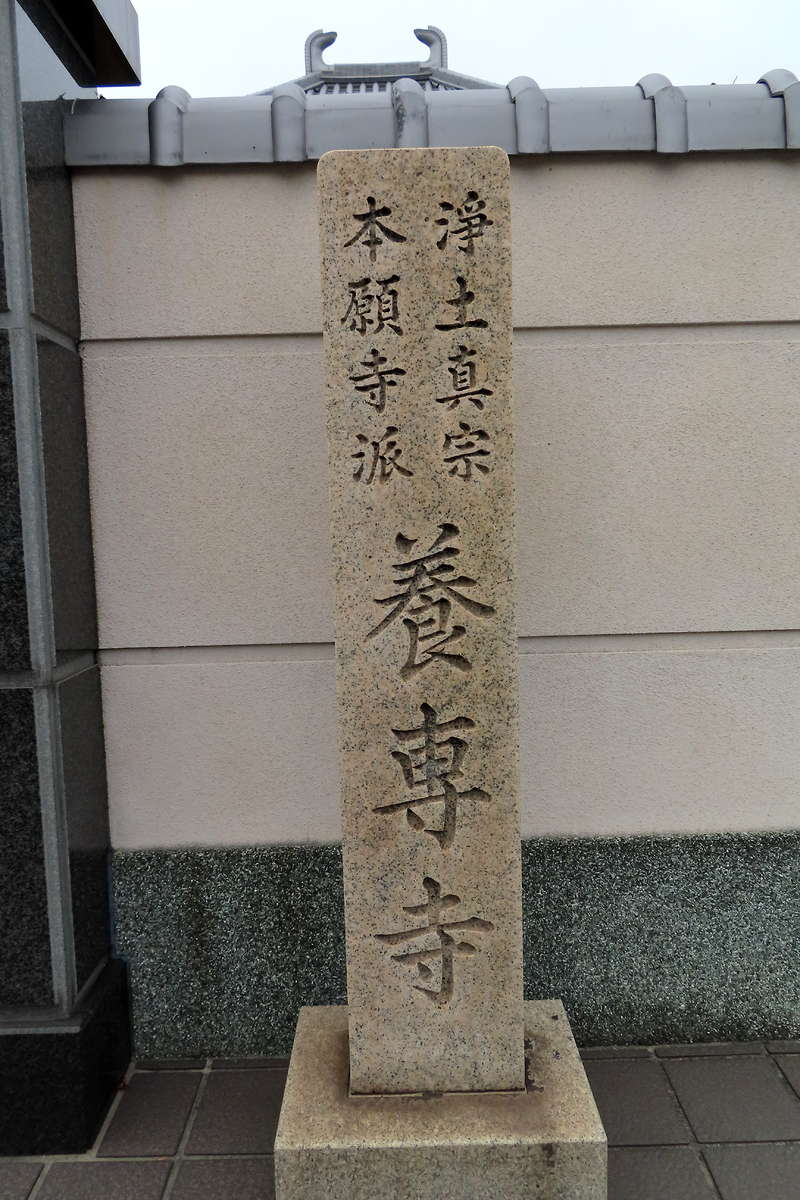 淨土真宗
本願寺派
養専寺